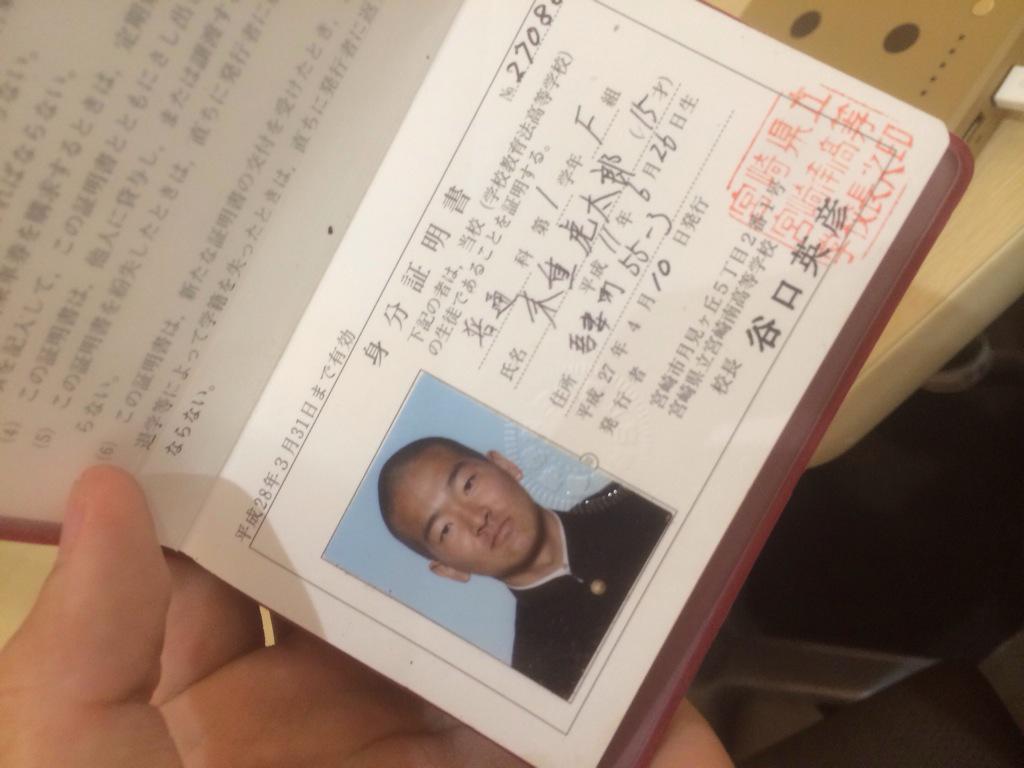 ればならない。
乗車券を購求するときは、定期
を記入して、この証明書とともにさし出し
(4) この証明書は、他人に貸与し、または譲渡す
(5) この証明書を紛失したときは、直ちに発行者に
らない。
(6) この証明書は、新たな証明書の交付を受けたとき、
退学等によって学籍を失ったときは、直ちに発行者に返
ならない。
平成28年3月31日まで有効
№ 2708
身分証明書
下記の者は、当校(学校教育法高等学校)
の生徒であることを証明する。
普通 科 第 1 学年 F 組
氏名 虎太郎 (15才)
平成 11 年 6 月 26 日生
住所 町 55-3
平成 27 年 4 月 10 日発行
発行者
宮崎市月見ヶ丘5丁目2番1号
宮崎県立宮崎南高等学校
校長 谷口英彦
宮崎県立
宮崎南高等
学校長之印